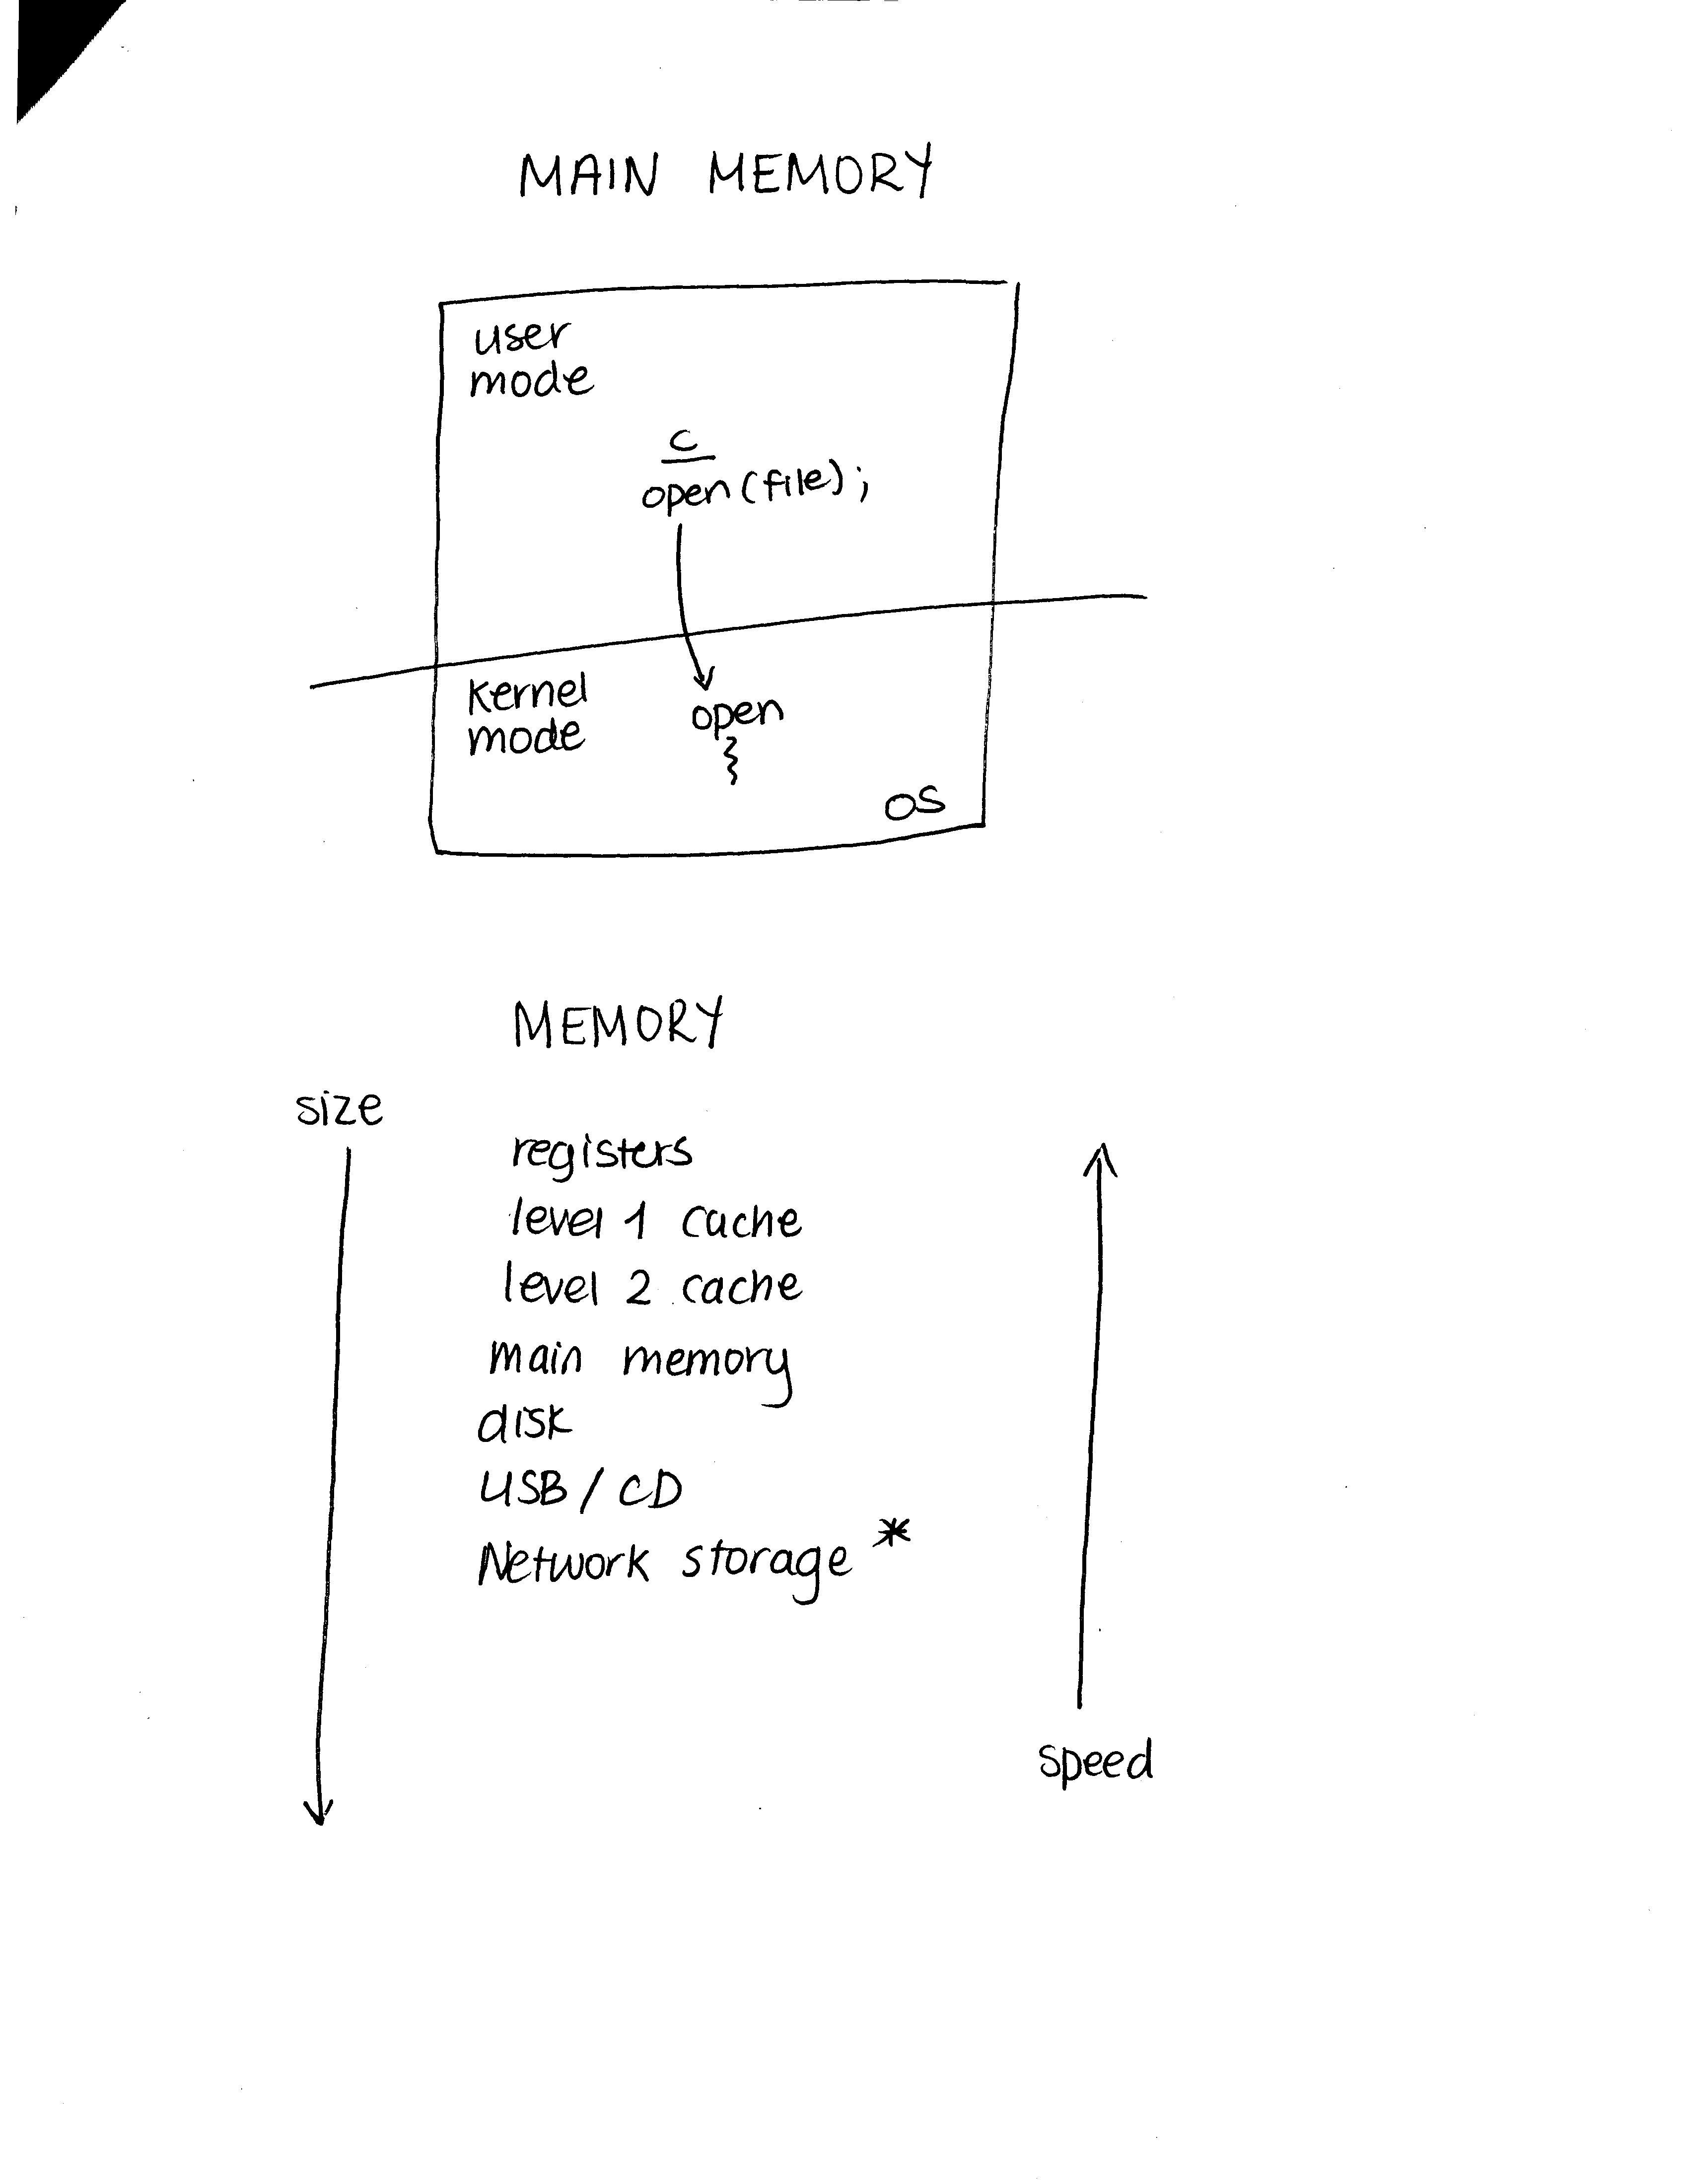 MAIN MEMORY
user
mode
C
open (file);
kernel
mode
open
OS
MEMORY
size
registers
level 1 cache
level 2 cache
main memory
disk
USB / CD
Network storage *
speed